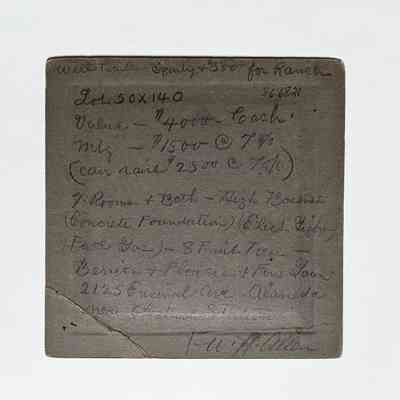 Will Trade Equity + $500 for Ranch
Lot 50x140
Value - $4000 - Cash.
Mtg - $1500 @ 7%
(can raise $2500 @ 7%)
7 Rooms + Bath - High Basement
(Concrete Foundation) (Elect Light
Fuel Gas) - 8 Fruit Trees -
Berries + Flowers + Fine Lawn
2125 Encinal Ave - Alameda
near Chestnut Station
W. A. Allen